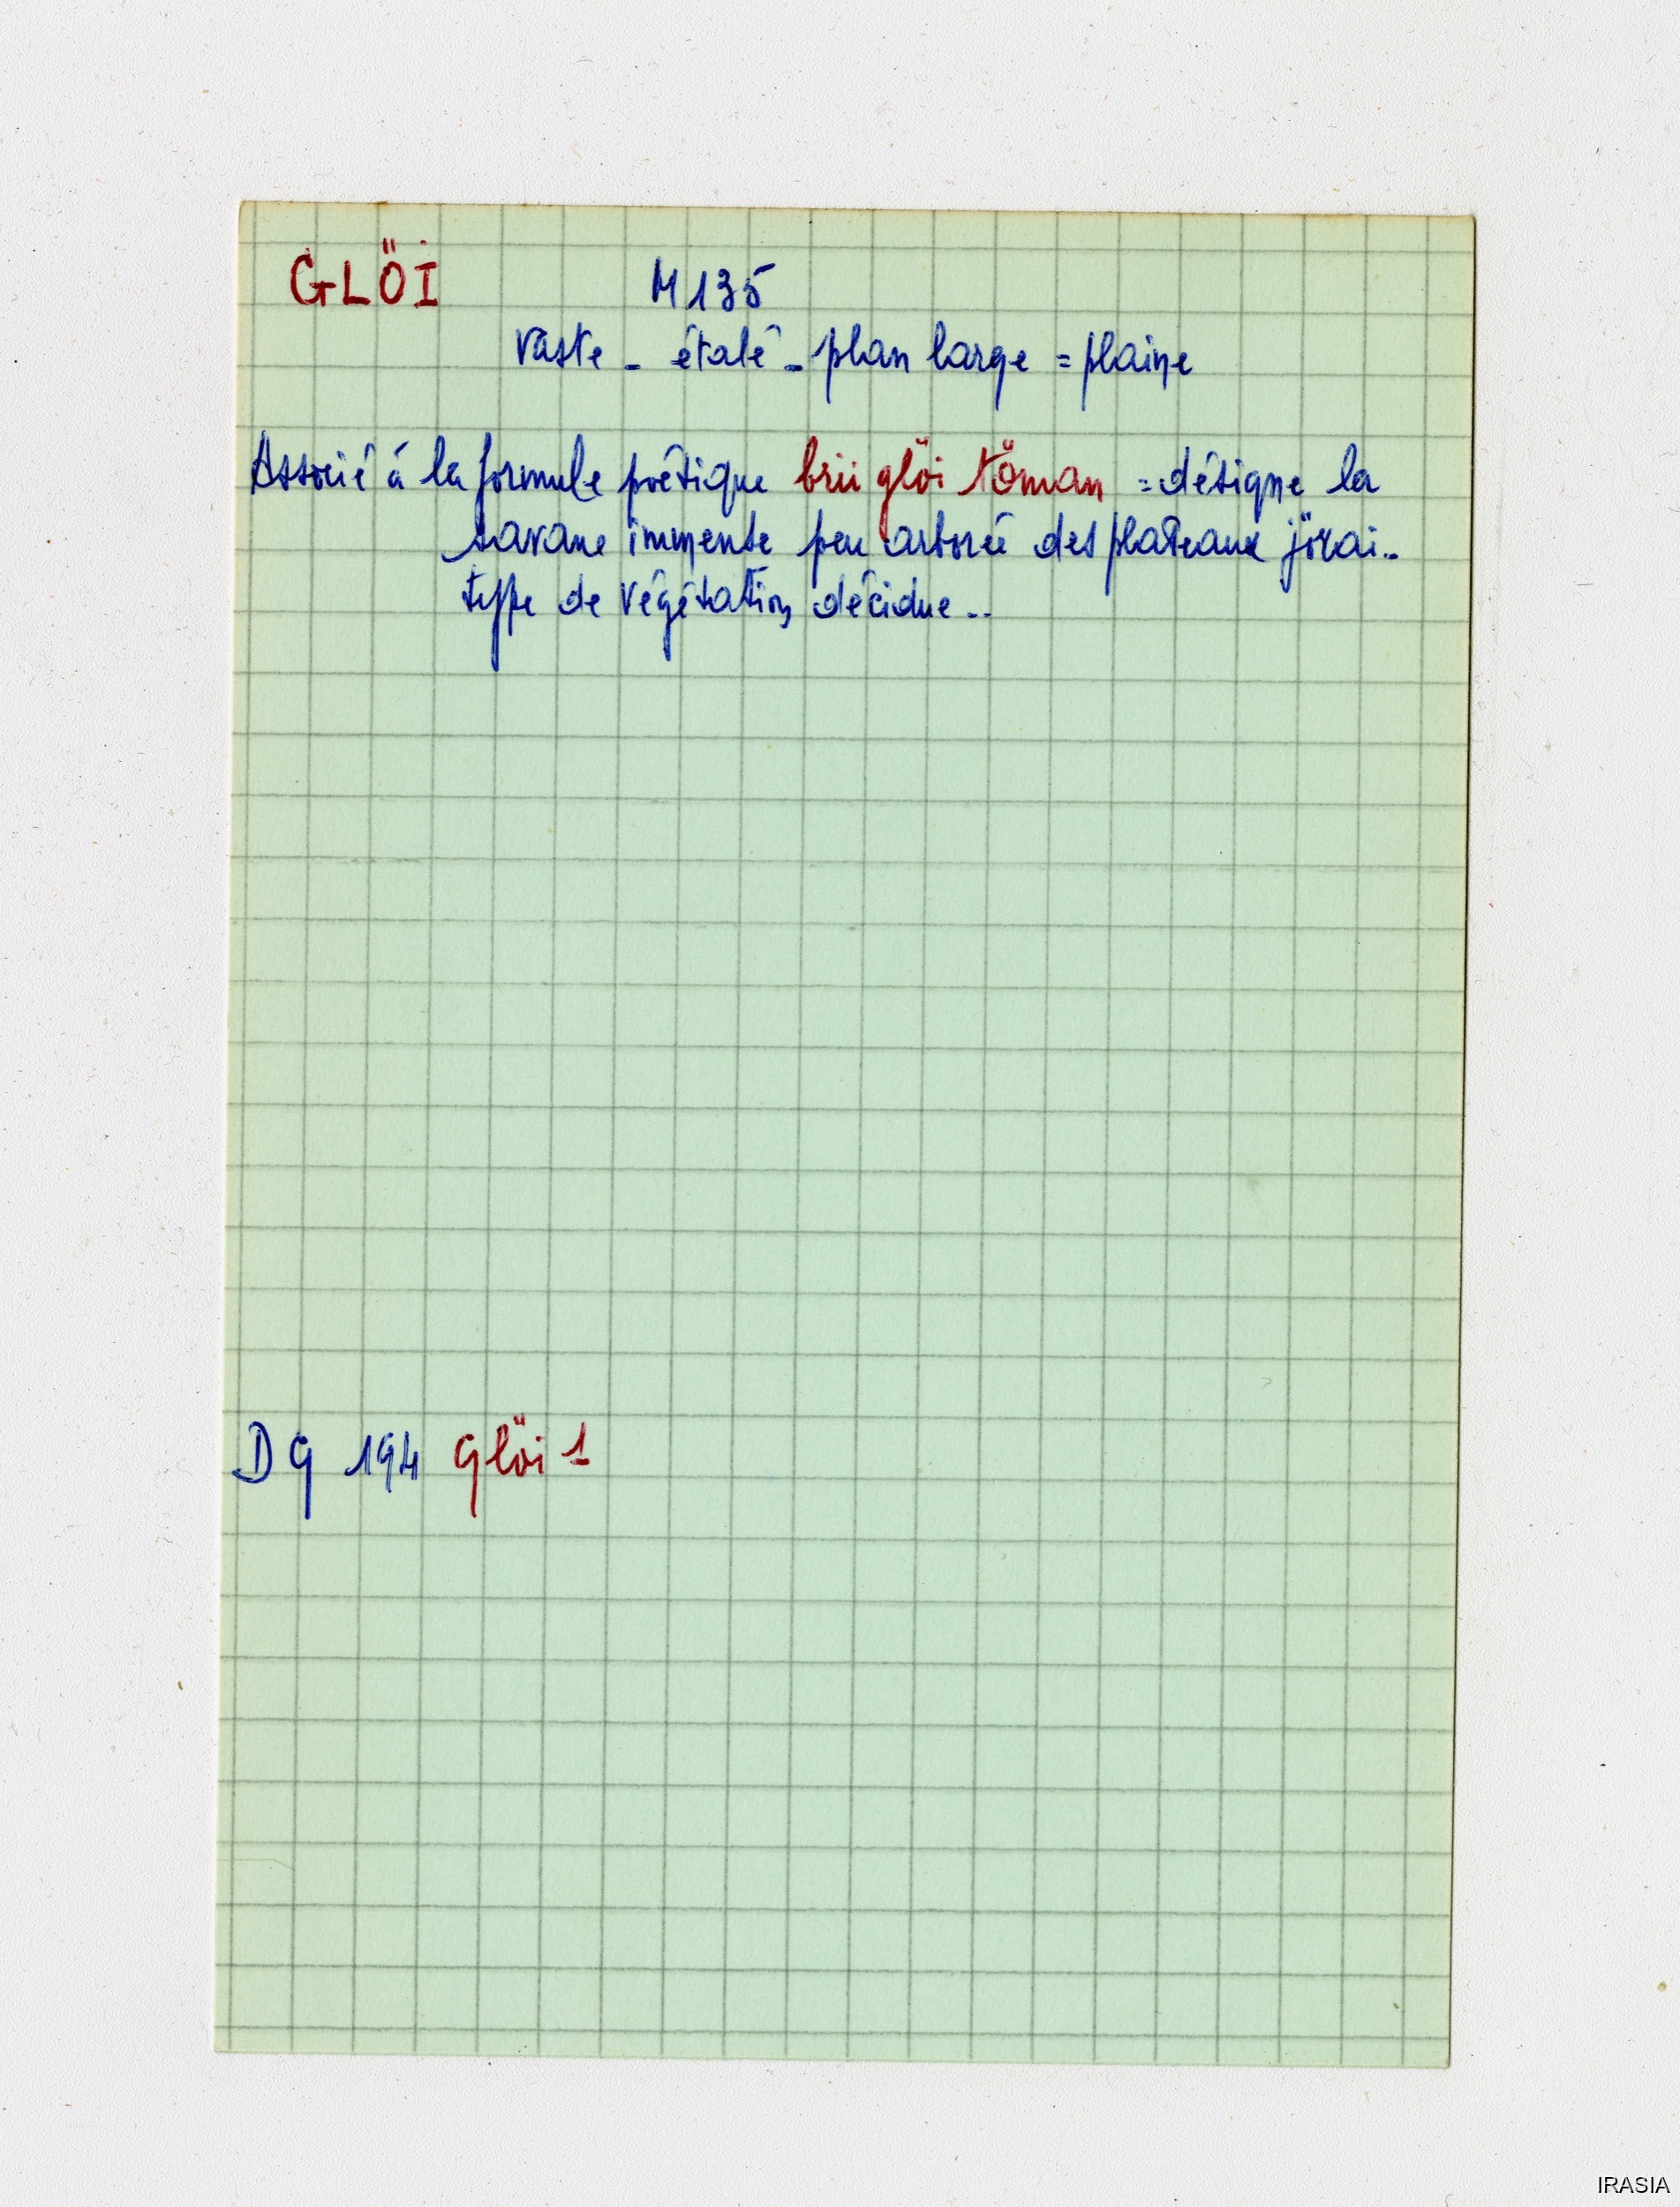 GLÖI M 135
vaste _ étalé _ plan large = plaine
Associé à la formule poétique brii glöi töman = désigne la
savane immense peu arborée des plateaux jörai..
type de végétation décidue ..
DG 194 glöi 1
IRASIA